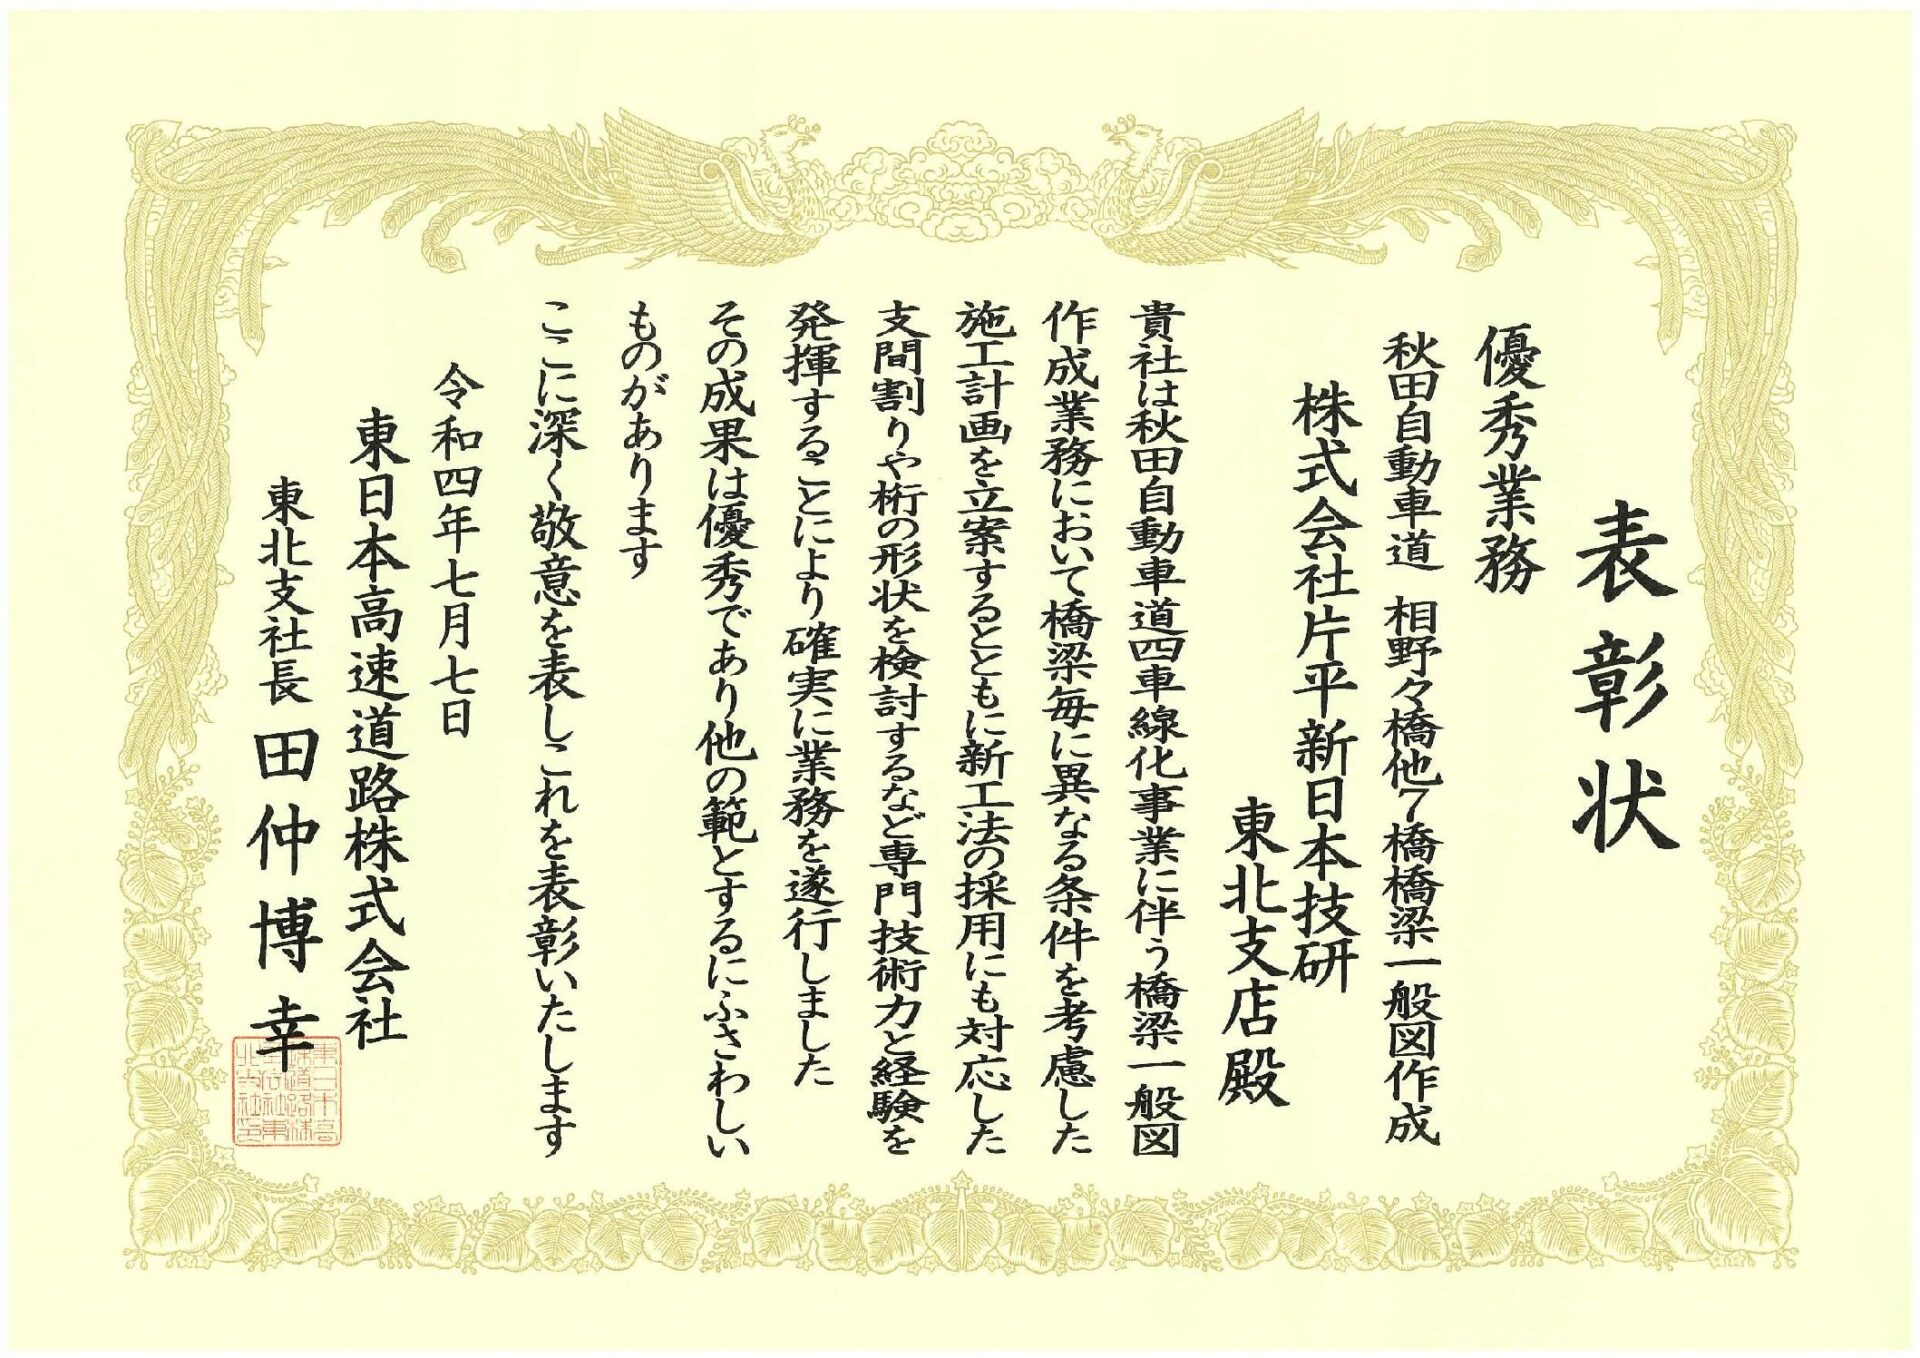 表彰状
優秀業務
秋田自動車道 相野々橋他7橋橋梁一般図作成
株式会社片平新日本技研
東北支店殿
貴社は秋田自動車道四車線化事業に伴う橋梁一般図
作成業務において橋梁毎に異なる条件を考慮した
施工計画を立案するとともに新工法の採用にも対応した
支間割りや桁の形状を検討するなど専門技術力と経験を
発揮することにより確実に業務を遂行しました
その成果は優秀であり他の範とするにふさわしい
ものがあります
ここに深く敬意を表しこれを表彰いたします
令和四年七月七日
東日本高速道路株式会社
東北支社長 田仲博幸